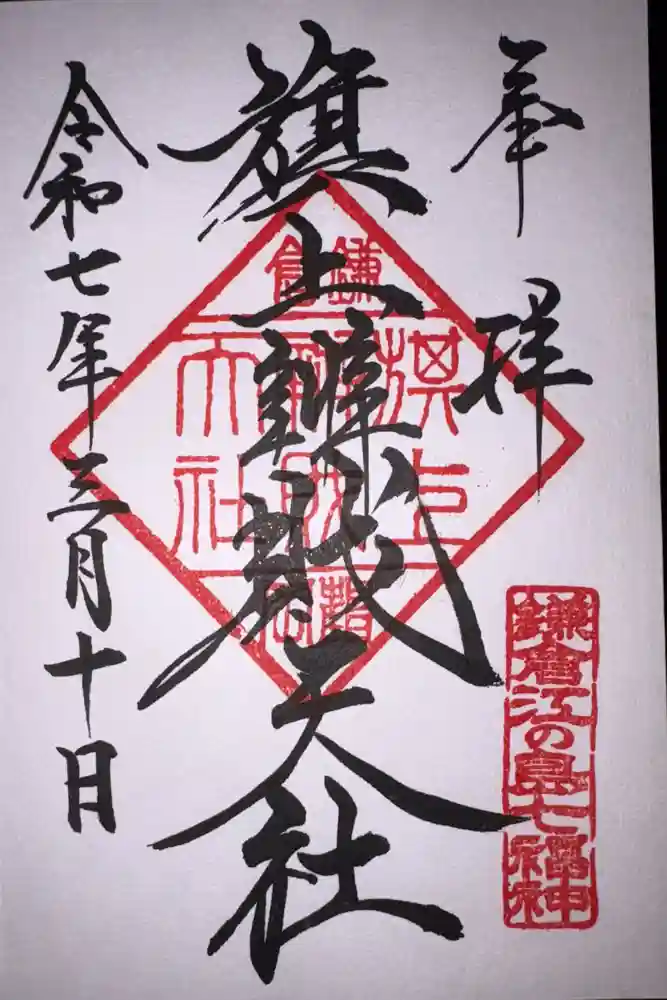 奉拝
旗上辨財天社
令和七年三月十日
鎌倉
旗上
辨財
天社
鎌倉江の島七福神